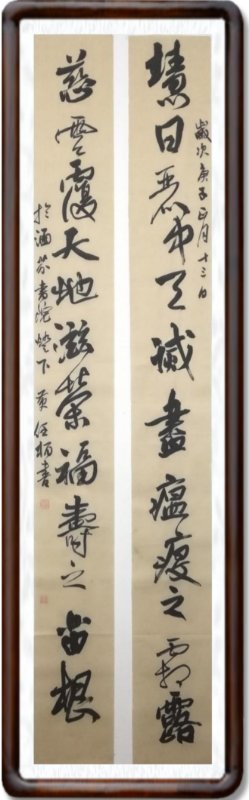 歲次庚子正月十三日
慧日麗中天滅盡瘟疫之霜露
慈雲覆大地滋榮福壽之苗根
於涵芬書院燈下 黃任柄書